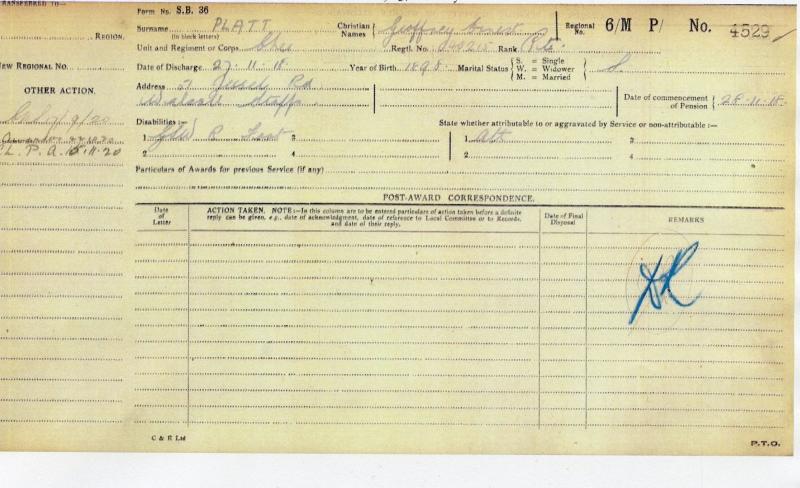 TRANSFERRED TO—
REGION.
NEW REGIONAL No.
OTHER ACTION.
L. P. A. 11.20
Form No. S.B. 36
Surname PLATT
(in block letters)
Christian Names Geoffrey Ernest
Regional No. 6/M P/ No. 4529
Unit and Regiment or Corps. Ches
Regtl. No. Rank Pte
Date of Discharge 27.11.18 Year of Birth 1898 Marital Status S. = Single W. = Widower M. = Married S.
Address Rd
Walsall Staffs
Date of commencement of Pension 28.11.18.
Disabilities :— State whether attributable to or aggravated by Service or non-attributable :—
1. GSW R 3 1. Att 3
2 4 2 4
Particulars of Awards for previous Service (if any)
POST-AWARD CORRESPONDENCE.
Date of Letter
ACTION TAKEN. NOTE :—In this column are to be entered particulars of action taken before a definite
reply can be given, e.g., date of acknowledgment, date of reference to Local Committee or to Records,
and date of their reply.
Date of Final Disposal
REMARKS
C & E Ltd
P.T.O.